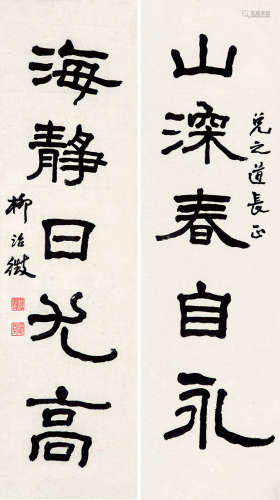 山深春自永
兑之道長正
海靜日尤高
柳詒徵